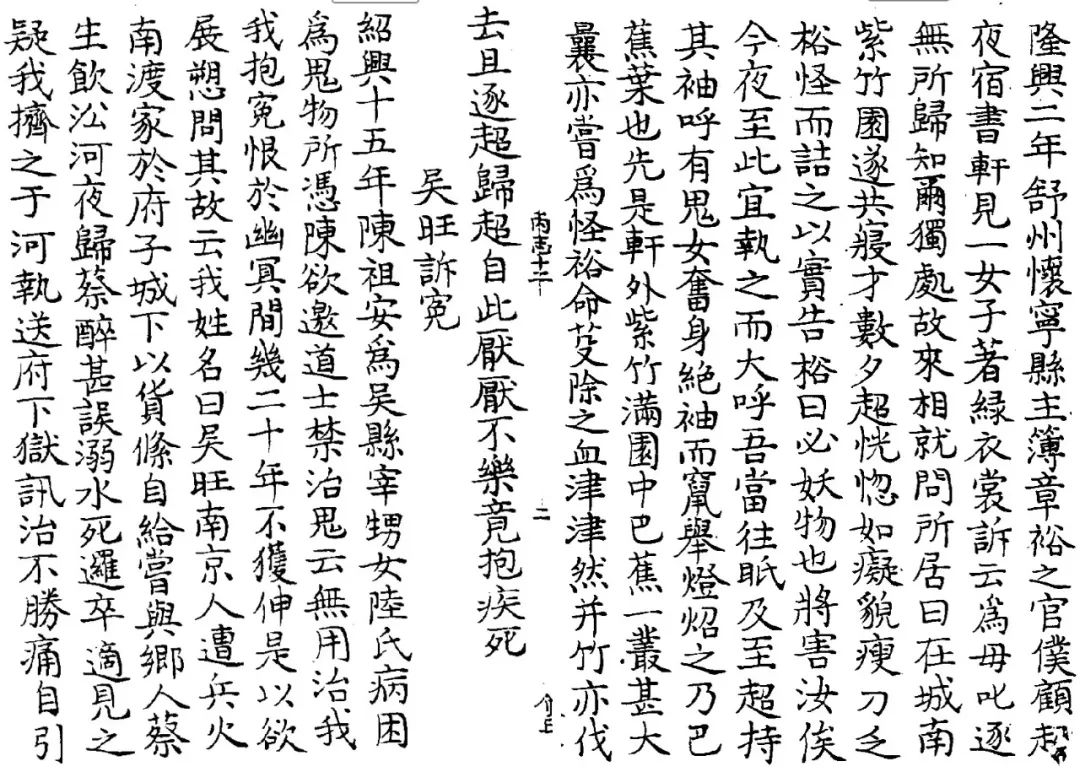 隆興二年舒州懷寧縣主簿章裕之官僕顧超
夜宿書軒見一女子著綠衣裳訴云爲母叱逐
無所歸知爾獨處故來相就問所居曰在城南
紫竹園遂共寢才數夕超恍惚如癡貌瘦刀乏
裕怪而詰之以實告裕曰必妖物也將害汝俟
今夜至此宜執之而大呼吾當往眂及至超持
其袖呼有鬼女奮身絕袖而竄舉燈炤之乃巴
蕉葉也先是軒外紫竹滿園中巴蕉一叢甚大
曩亦嘗爲怪裕命芟除之血津津然并竹亦伐
丙志十二
二
去且逐超歸超自此厭厭不樂竟抱疾死
吳旺訴冤
紹興十五年陳祖安爲吳縣宰甥女陸氏病困
爲鬼物所憑陳欲邀道士禁治鬼云無用治我
我抱冤恨於幽冥間幾二十年不獲伸是以欲
展愬問其故云我姓名曰吳旺南京人遭兵火
南渡家於府子城下以貨絛自給嘗與鄉人蔡
生飲㳂河夜歸蔡醉甚誤溺水死邏卒適見之
疑我擠之于河執送府下獄訊治不勝痛自引